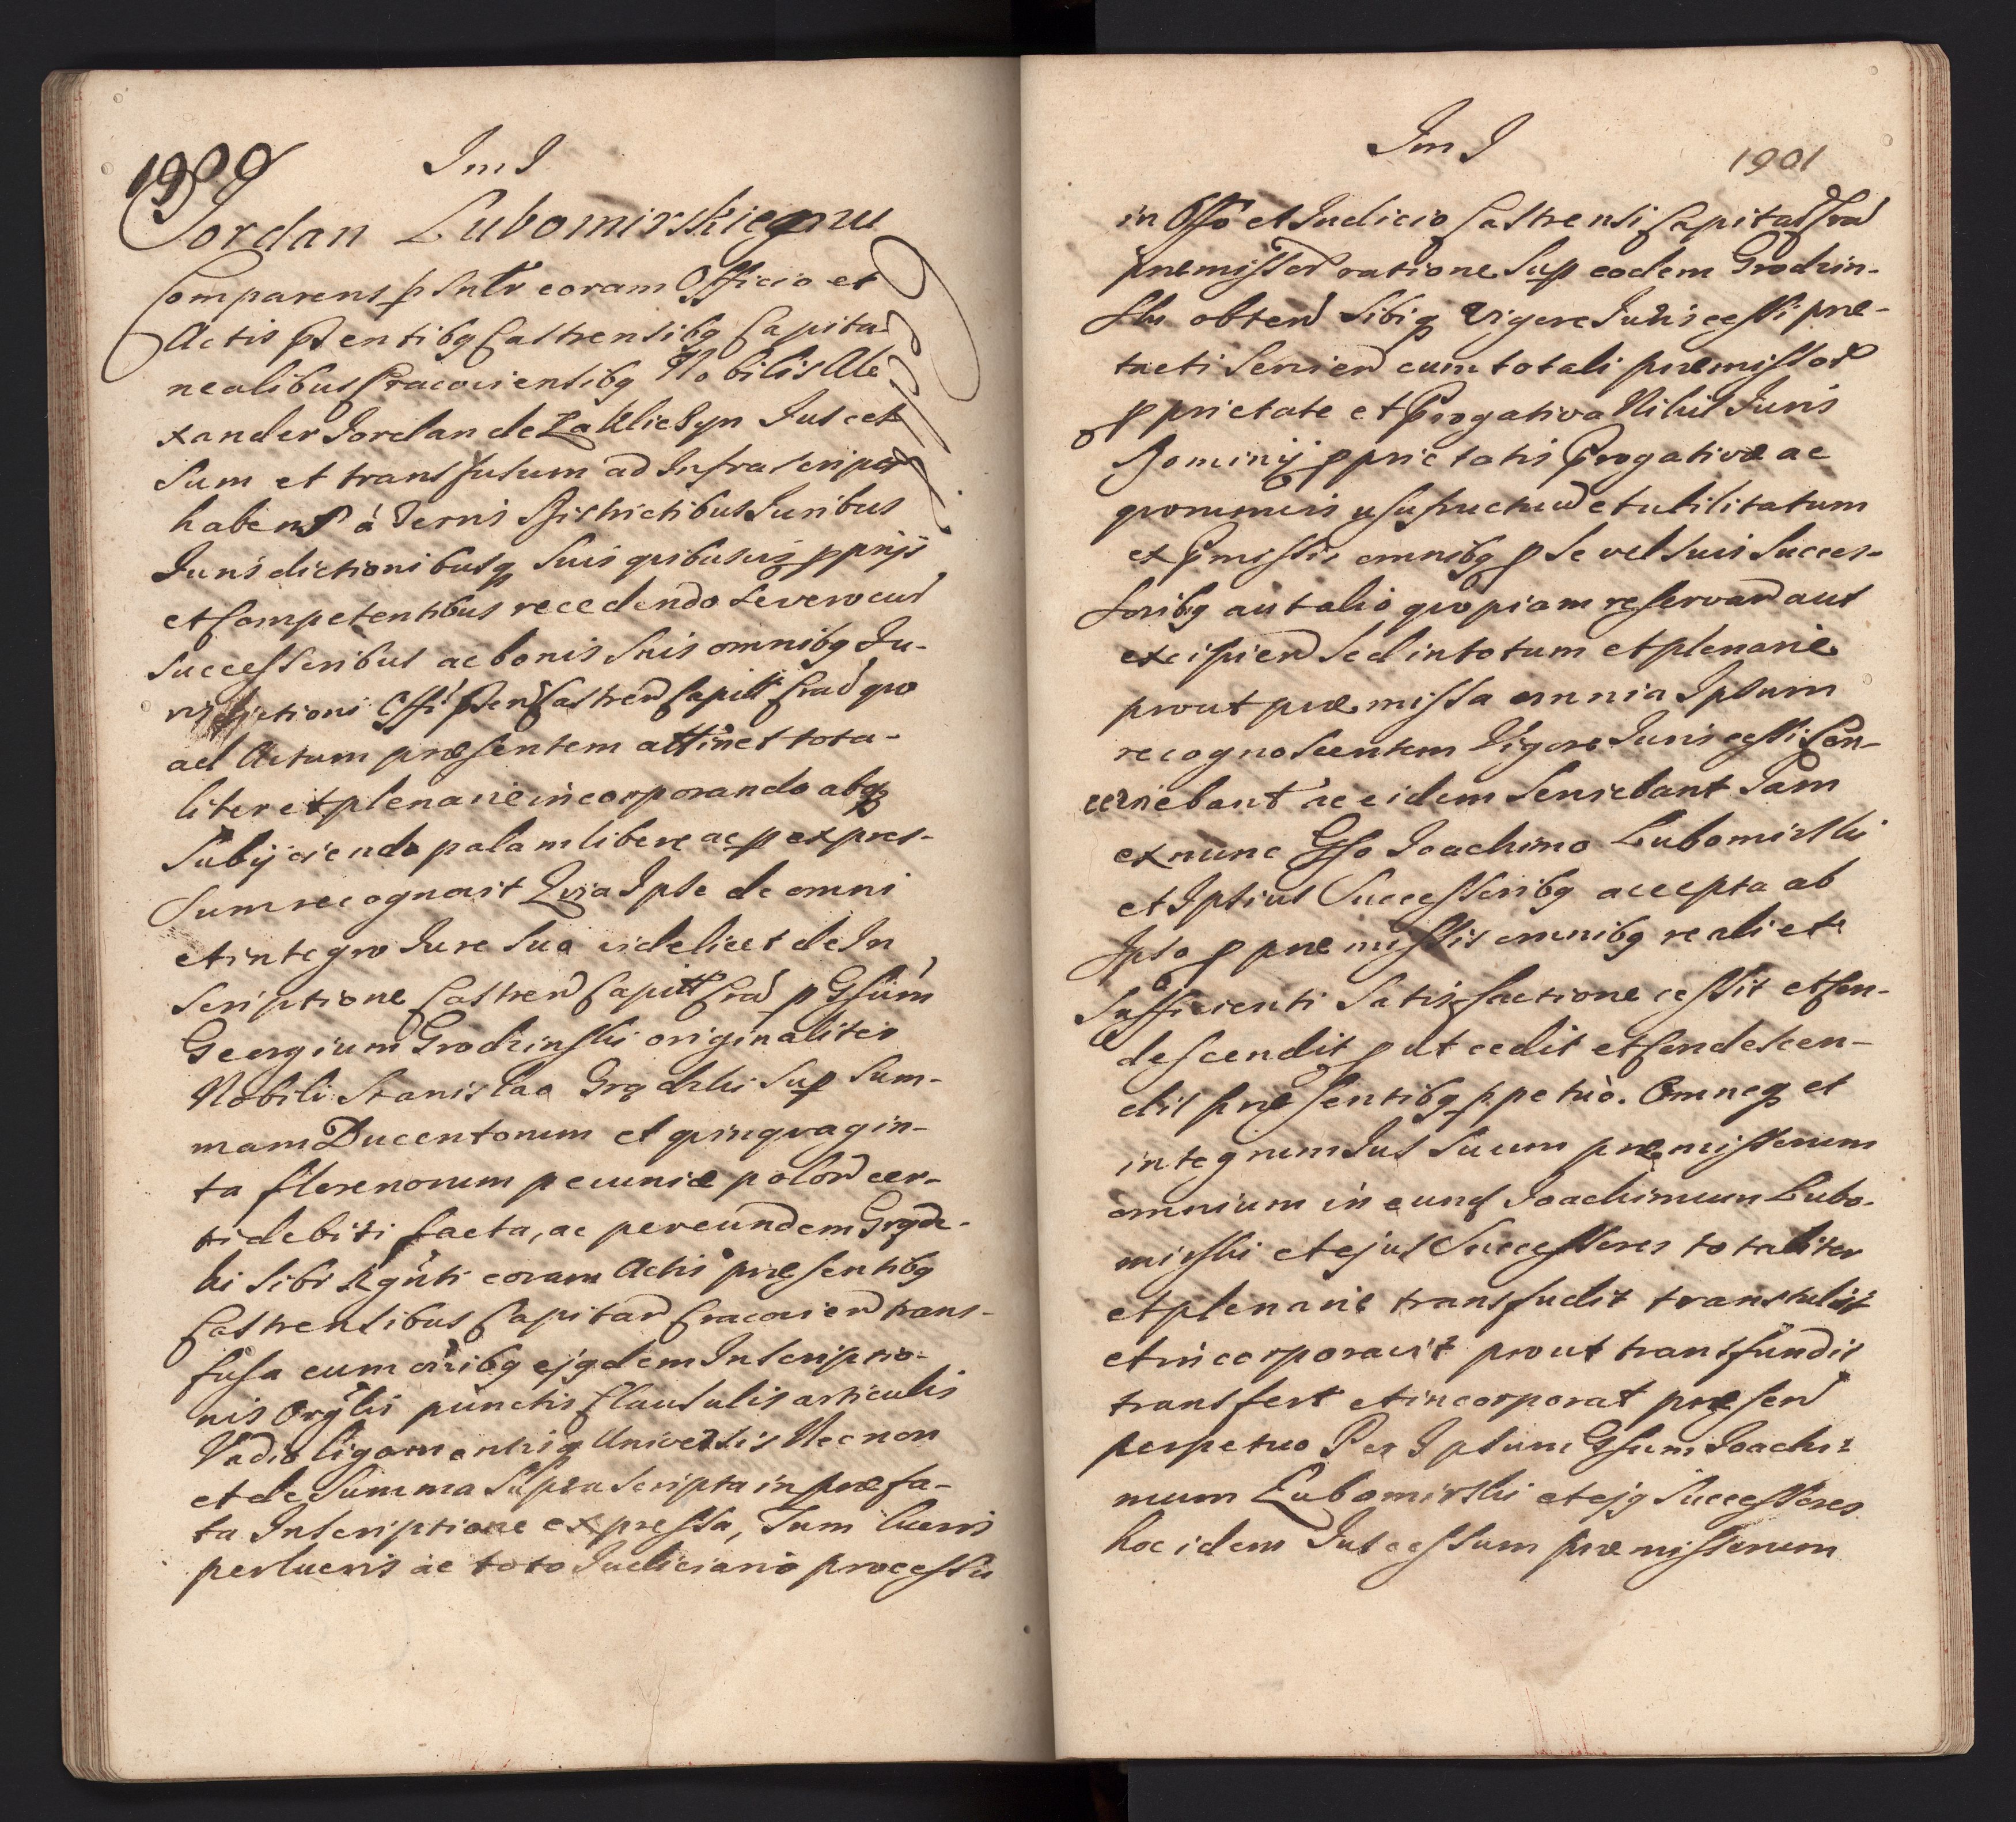 1900
Im I
Jordan Lubomirskiemu
Comparens pśnlr coram Officio et
Actis pñentibq Castrensibq Capita-
nealibus Cracoviensibq Nobilis Ale
xander Jordan de Zakliczyn Jus ces
sum et transfusum ad Infrascripta
habens à Terris Districtibus Juribus
Jurisdictionibusq Suis quibusvis pprijs
et Competentibus recedendo Se vero cum
Successoribus ac bonis Suis omnibq Ju-
risdictioni Offi Pñen Castren Capitt Crac quo
ad Actum præsentem attinet tota-
liter et plenarie incorporando abq
Subijciendo palam libere ac p expres-
Sum recognovit Quia Ipse de omni
et integro Jure Suo videlicet de In
Scriptione Castren Capitt Crac p Gssum
Georgium Grodzinski originaliter
Nobili Stanislao Grądzki Sup Sum-
mam Ducentorum et quinquagin-
ta florenorum pecuniæ polon cer-
ti debiti facta, ac per eundem Grądz-
ki Sibi Rgńti coram Actis præsentibq
Castrensibus Capitan Cracovien trans-
fusa cum oñibq ejqdem Inscriptio-
nis Orglis punctis Clausulis articulis
Vadio ligamentisq Universis Necnon
et de Summa Suprascripta in præfa-
ta Inscriptione expressa, Tum lucris
perlucris ac toto Judiciario processu
Im I
1901
in Offo et Judicio Castrensi Capitan Crac
præmissor ratione Sup eodem Grodzin-
ski obten Sibiq Vigore Juris cessi præ-
tacti Servien cum totali præmissor
pprietate et Prrogativa Nihil Juris
Dominij pprietatis Prrogativæ ac
quorumvis usufructuu et utilitatum
ex Pmissis omnibq p Se vel Suis Succes-
soribq aut alio quopiam reservan aut
excipien Sed in totum et plenarie
prout præmissa omnia Ipsum
recognoscentem Vigore Juris cessi Con-
cernebant ac eidem Serviebant Jam
ex nunc Gso Joachimo Lubomirski
et Ipsius Successoribq accepta ab
Ipso p præmissis omnibq reali et
Sufficienti Satisfactione cessit et Con-
descendit put cedit et Condescen-
dit præsentibq ppetuò. Omneq et
integrum Jus Suum præmissorum
omnium in eund Joachimum Lubo-
mirski et ejus Successores totaliter
et plenarie transfudit transtulit
et incorporavit prout transfundit
transfert et incorporat præsen
perpetuo Per Ipsum Gsum Joachi-
mum Lubomirski et ejq Successores
hoc idem Jus cessum præmissorum